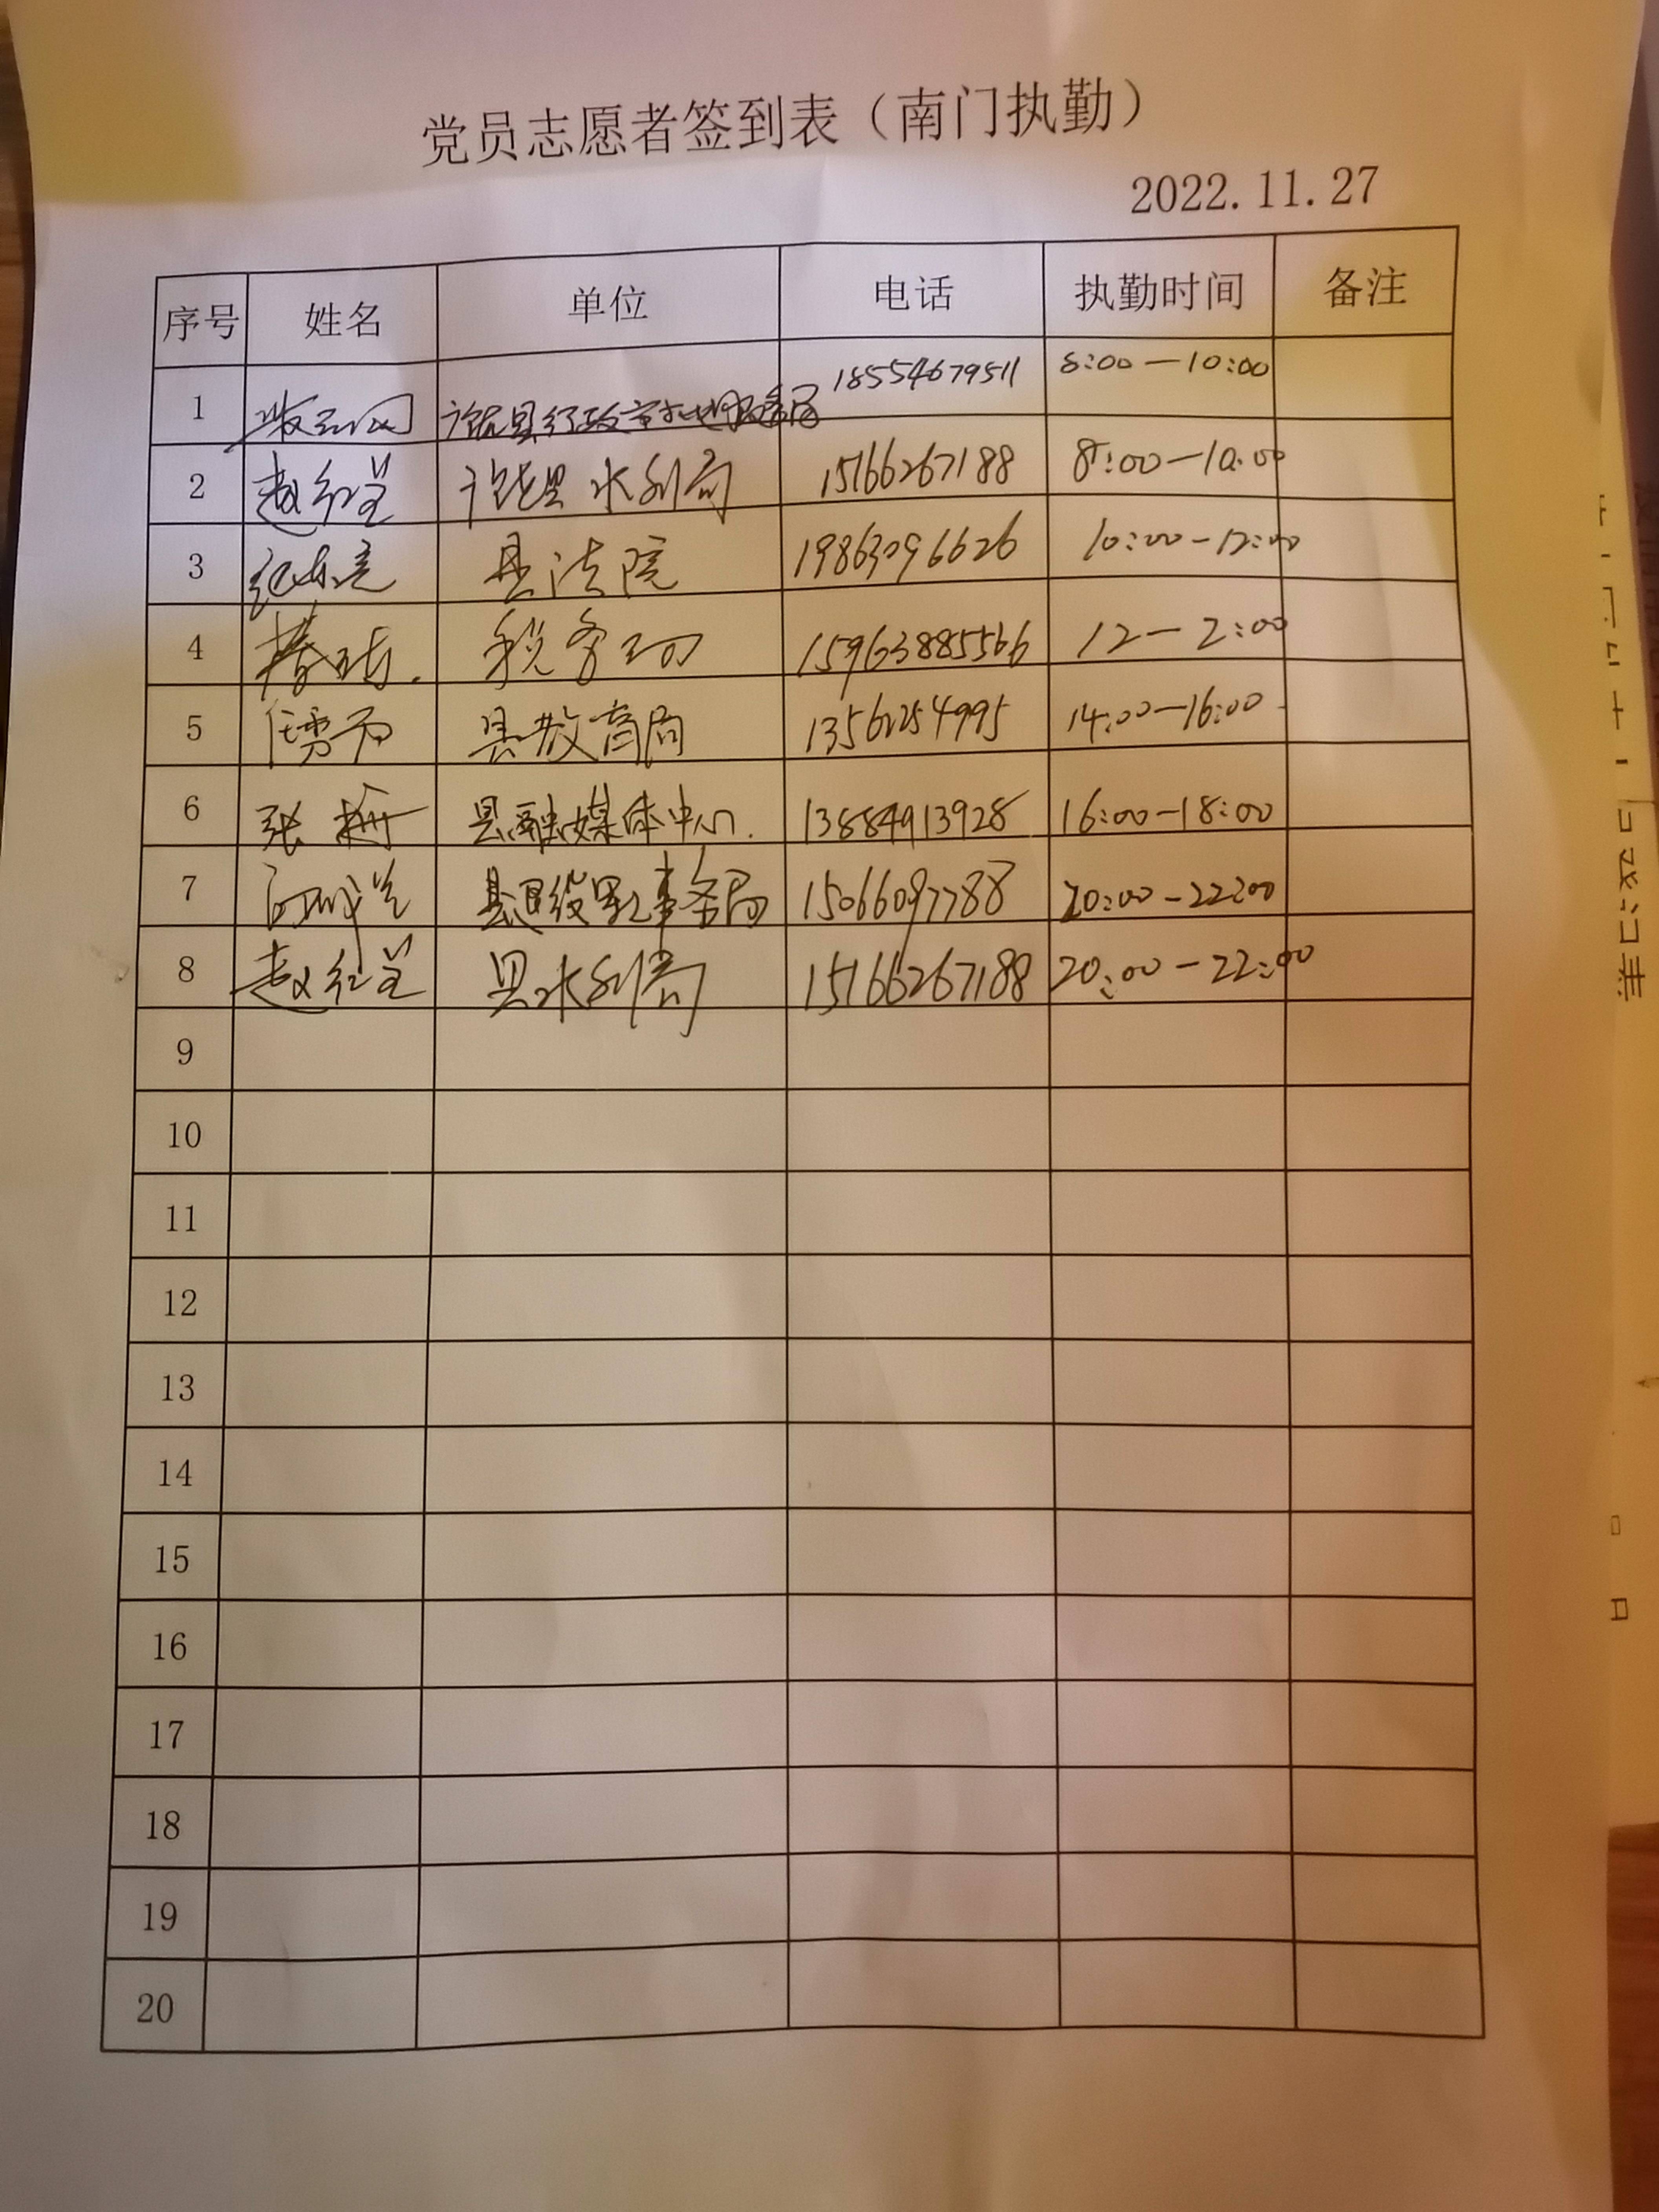 党员志愿者签到表（南门执勤）
2022.11.27
序号 姓名 单位 电话 执勤时间 备注
1 18554679511 8:00—10:00
2 赵红莹 水利局 15166267188 8:00—10:00
3 纪东亮 县法院 19863096626 10:00-12:00
4 税务 15963885566 12—2:00
5 县教育局 13561254995 14:00—16:00
6 张 县融媒体中心. 13884913928 16:00-18:00
7 县退役军人事务局 15066097788 20:00-22:00
8 赵红莹 县水利局 15166267188 20:00-22:00
9
10
11
12
13
14
15
16
17
18
19
20